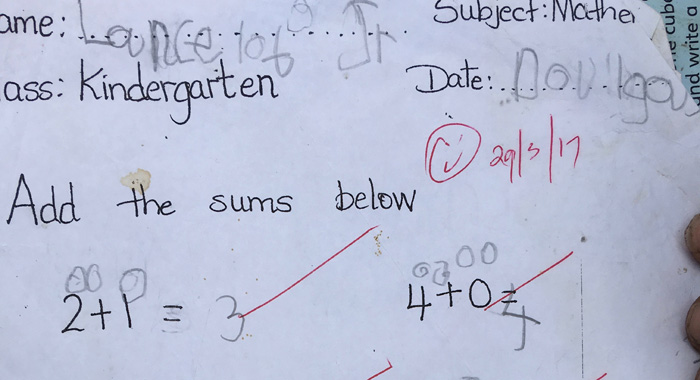 ame: Lancelot Jr
Subject: Mathe
ass: Kindergarten
Date:
29/3/17
Add the sums below
2+1 = 3
4+0=4
and write a